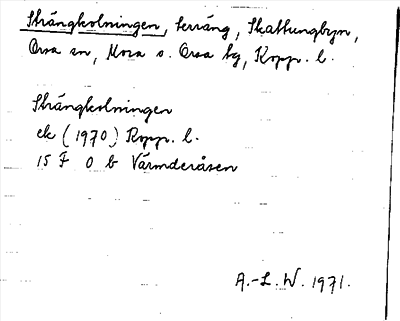 Strängkolningen, terräng, Skattungbyn,
Orsa sn, Mora o. Orsa tg, Kopp. l.
Strängkolningen
ek (1970) Kopp. l.
15 F 0 b Värmderåsen
A.-L. W. 1971.